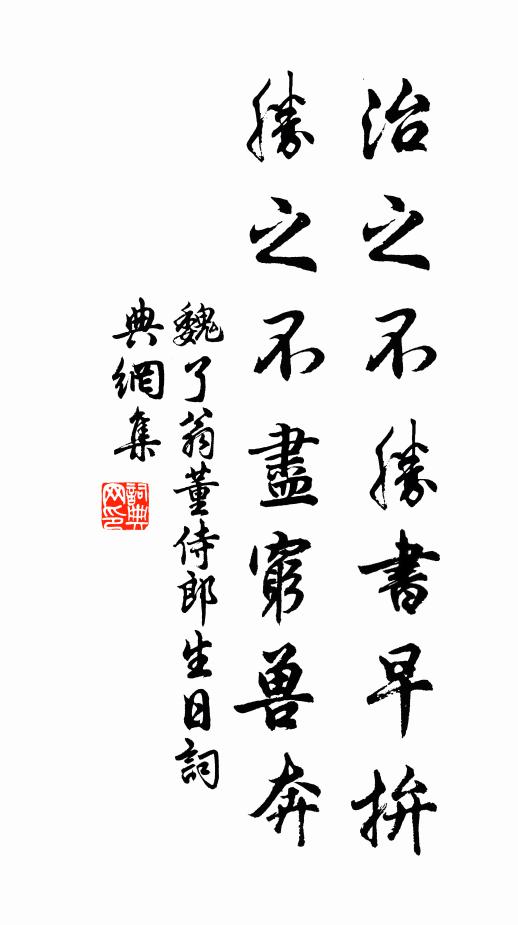 治之不勝書早拚
勝之不盡窮兽奔
魏了翁董侍郎生日詞
典網集
詞典網印